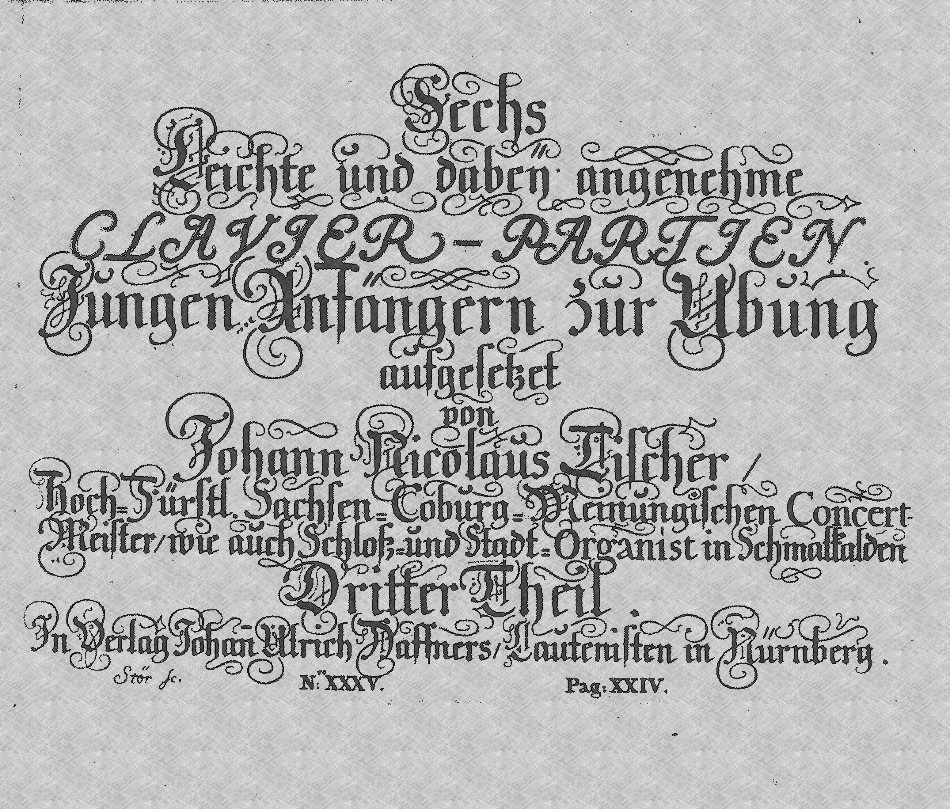 Sechs
Leichte und dabeÿ angenehme
CLAVIER-PARTIEN.
Jungen Anfängern zur Ubung
aufgesetzet
von
Johann Nicolaus Tischer /
Hoch-Fürstl. Sachsen-Coburg-Meinungischen Concert-
Meister/wie auch Schloß-und Stadt-Organist in Schmalkalden
Dritter Theil.
In Verlag Johan̄ Ulrich Haffners/Lautenisten in Nürnberg.
Stör sc. No: XXXV. Pag: XXIV.